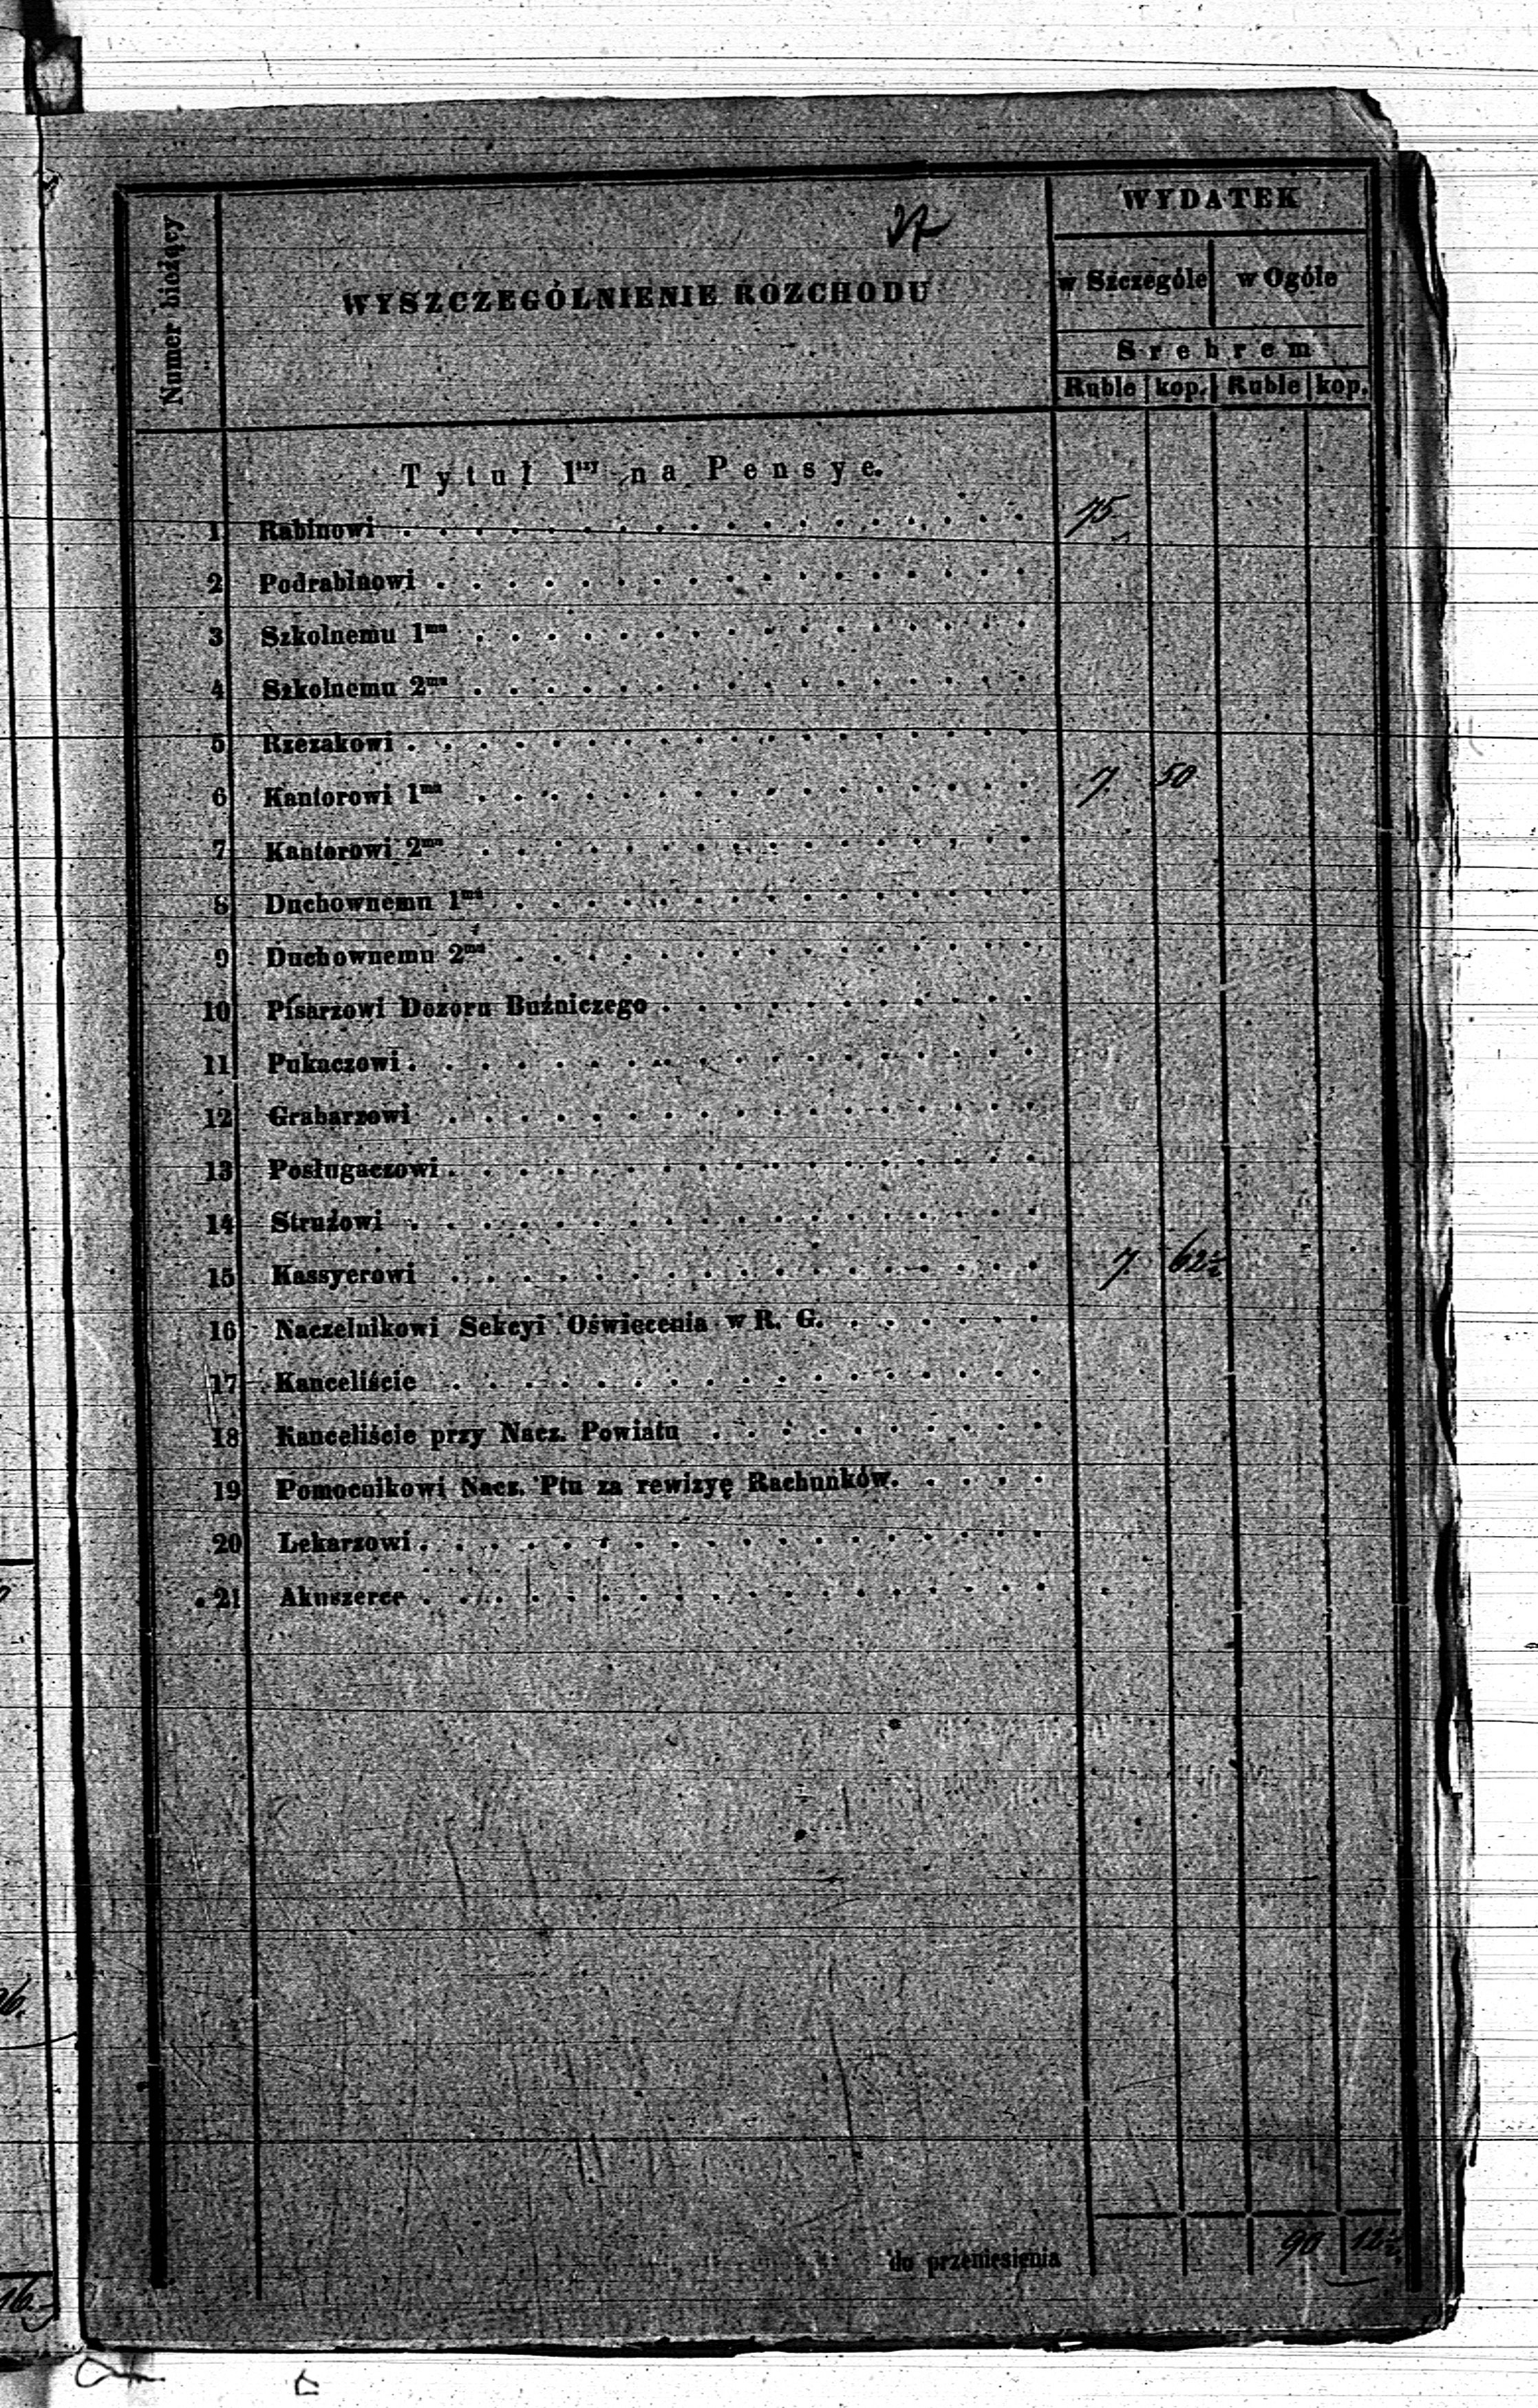 27
WYDATEK
Numer bieżący
WYSZCZEGÓLNIENIE ROZCHODU
w Szczególe w Ogóle
Srebrem
Ruble kop. Ruble kop.
Tytuł 1szy na Pensye.
1 Rabinowi 75
2 Podrabinowi
3 Szkolnemu 1mu
4 Szkolnemu 2mu
5 Rzezakowi
6 Kantorowi 1mu 7. 50
7 Kantorowi 2mu
8 Duchownemu 1mu
9 Duchownemu 2mu
10 Pisarzowi Dozoru Buźniczego
11 Pukaczowi
12 Grabarzowi
13 Posługaczowi
14 Strużowi
15 Kassyerowi 7. 62½
16 Naczelnikowi Sekcyi Oświecenia w R. G.
17 Kanceliście
18 Kanceliście przy Nacz. Powiatu
19 Pomocnikowi Nacz. Ptu za rewizyę Rachunków.
20 Lekarzowi
21 Akuszerce
do przeniesienia 90 12½